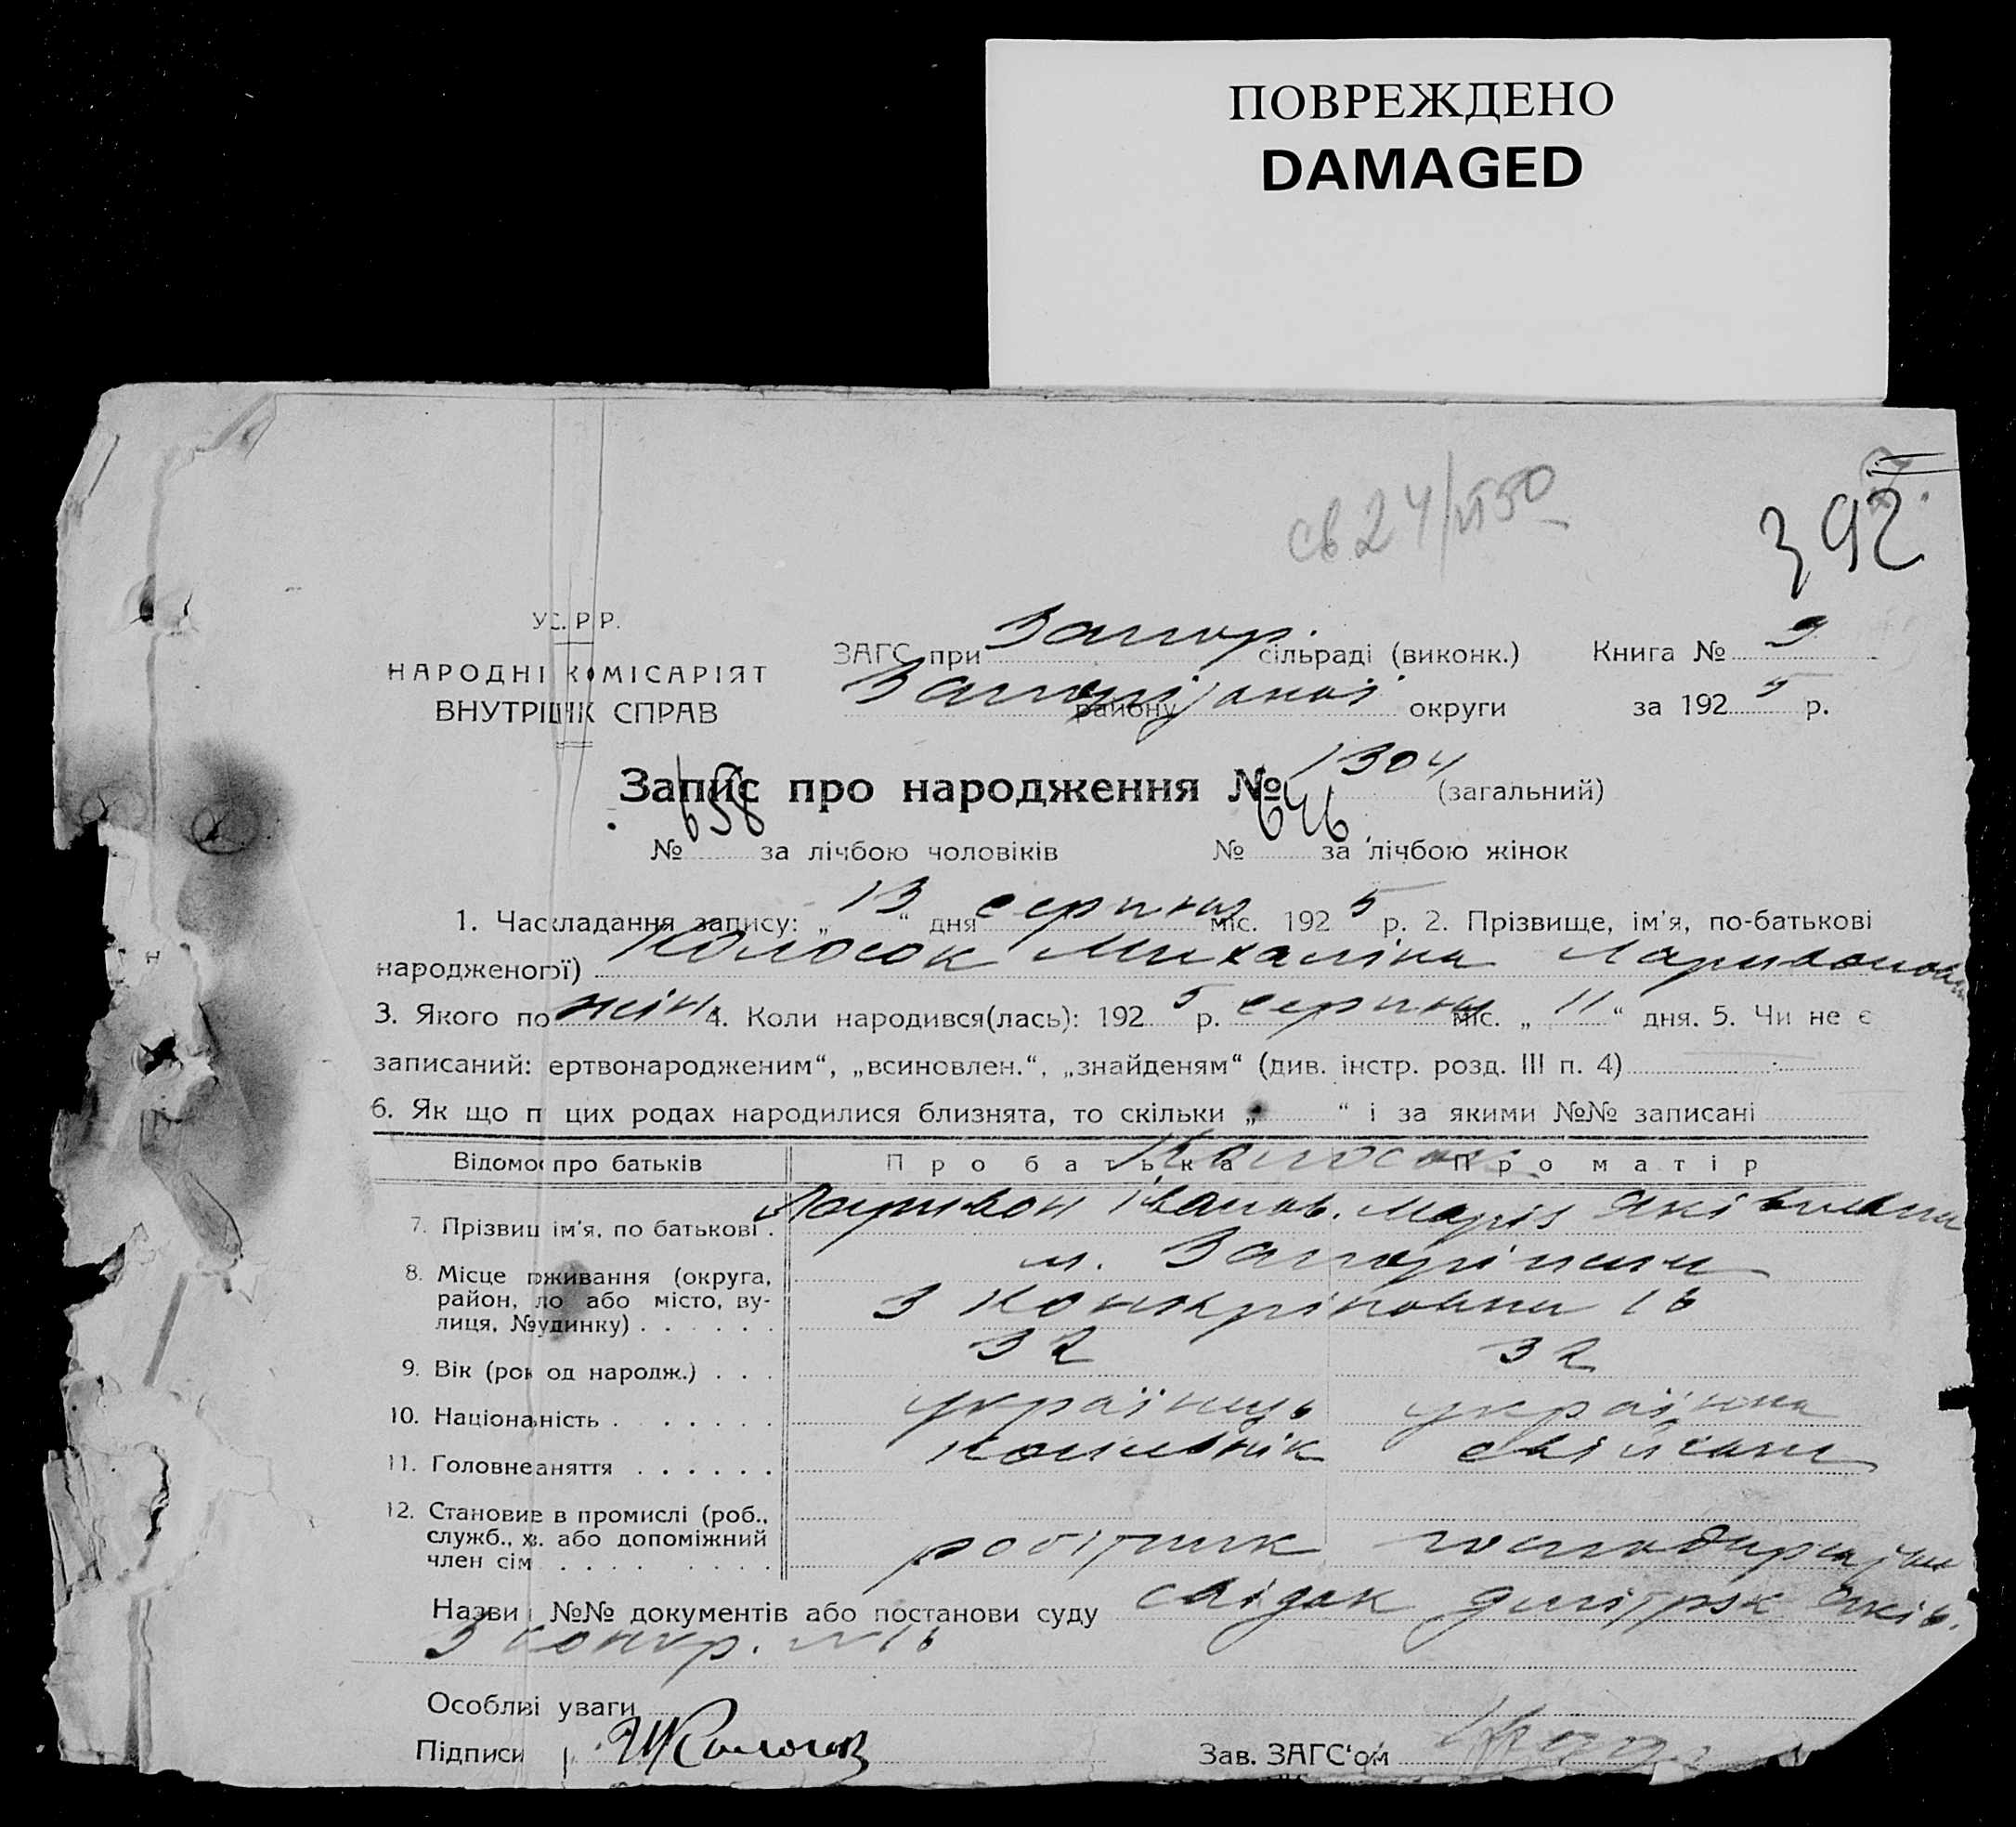 ПОВРЕЖДЕНО
DAMAGED
392
св 24/
У.С.Р.Р.
НАРОДНІ КОМІСАРІЯТ
ВНУТРІШ СПРАВ
ЗАГС при Запор. сільраді (виконк.) Книга №
району округи за 1925 р.
Запис про народження № 1304 (загальний)
№ 658 за лічбою чоловіків № 646 за лічбою жінок
1. Час кладання запису: „13“ дня серпня міс. 1925 р. 2. Прізвище, ім'я, по-батькові
народженого ї) Колосок Михаліна
3. Якого по жін. 4. Коли народився(лась): 1925 р. серпня міс. „11“ дня. 5. Чи не є
записаний: ертвонародженим“, „всиновлен.“, „знайденям“ (див. інстр. розд. III п. 4)
6. Як що п цих родах народилися близнята, то скільки „ “ і за якими №№ записані
Відомос про батьків Про батька Про матір
Колосок
7. Прізвищ ім'я, по батькові . Ларивон Іванов. Марія Яківна
8. Місце п живання (округа, м. Запоріжжя
район, ло або місто, ву-
лиця, № удинку) . . . . . . 16
9. Вік (рок од народж.) . . . 32 32
10. Націона ність . . . . . . . українець українка
11. Головне аняття . . . . . .
12. Станови в промислі (роб.,
служб., х . або допоміжний робітник
член сім . . . . . . . . .
Назви №№ документів або постанови суду свідок Яків.
16
Особлив і уваги
Підписи
Зав. ЗАГС'ом